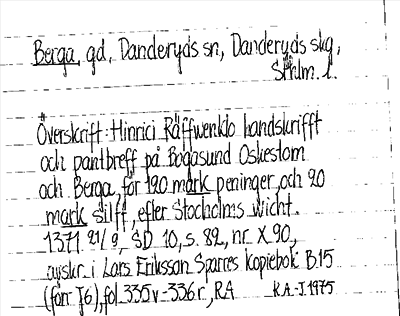 Berga, gd, Danderyds sn, Danderyds skg,
Sthlm. l.
Överskrift: Hinrici Räffwenklo handskrifft
och pantbreff på Bogasund Oskestom
och Berga för 120 mark peninger, och 20
mark silff, effer Stocholms wicht.
1371 21/9, SD 10, s. 82, nr X 90,
avskr. i Lars Eriksson Sparres kopiebok B.15
(förr J6), fol 335v-336r, RA K.A.-J. 1975